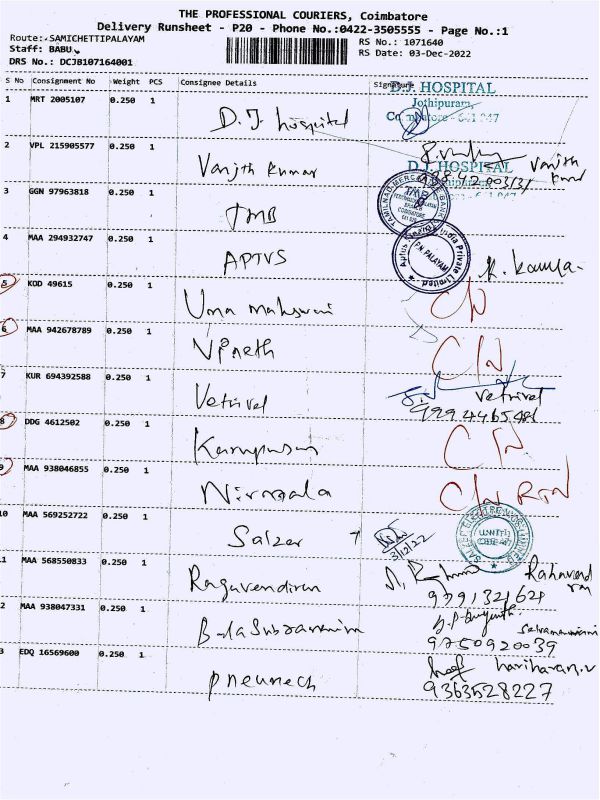 THE PROFESSIONAL COURIERS, Coimbatore
Delivery Runsheet - P20 - Phone No.:0422-3505555 - Page No.:1
Route: SAMICHETTIPALAYAM
Staff: BABU
DRS No.: DCJB107164001
RS No.: 1071640
RS Date: 03-Dec-2022
S No Consignment No Weight PCS Consignee Details Signature
1 MRT 2005107 0.250 1 D.J. hospital
D.J. HOSPITAL
Jothipuram,
Coimbatore - 641 047
2 VPL 215905577 0.250 1 Vanjth kumar
Vanjth
D.J. HOSPITAL
3 GGN 97963818 0.250 1 TMB
TAMILNAD MERCANTILE BANK
TMB
4 MAA 294932747 0.250 1 APTUS
Aptus Finance India Private Limited
P.N. PALAYAM
K. Kavya
5 KOD 49615 0.250 1 Uma mahswari CN
6 MAA 942678789 0.250 1 Vineth CN
7 KUR 694392588 0.250 1 Vetrivel
Vetrivel
8 DDG 4612502 0.250 1 CN
9 MAA 938046855 0.250 1 Nirmala CN RTN
10 MAA 569252722 0.250 1 Salzer
3/12/22
SALZER ELECTRONICS LIMITED
UNIT
11 MAA 568550833 0.250 1 Raguvendiran
9791321621
2 MAA 938047331 0.250 1 Balasubramanim
9750920039
3 EDQ 16569600 0.250 1 Pneumech
hariharan.v
9363528227